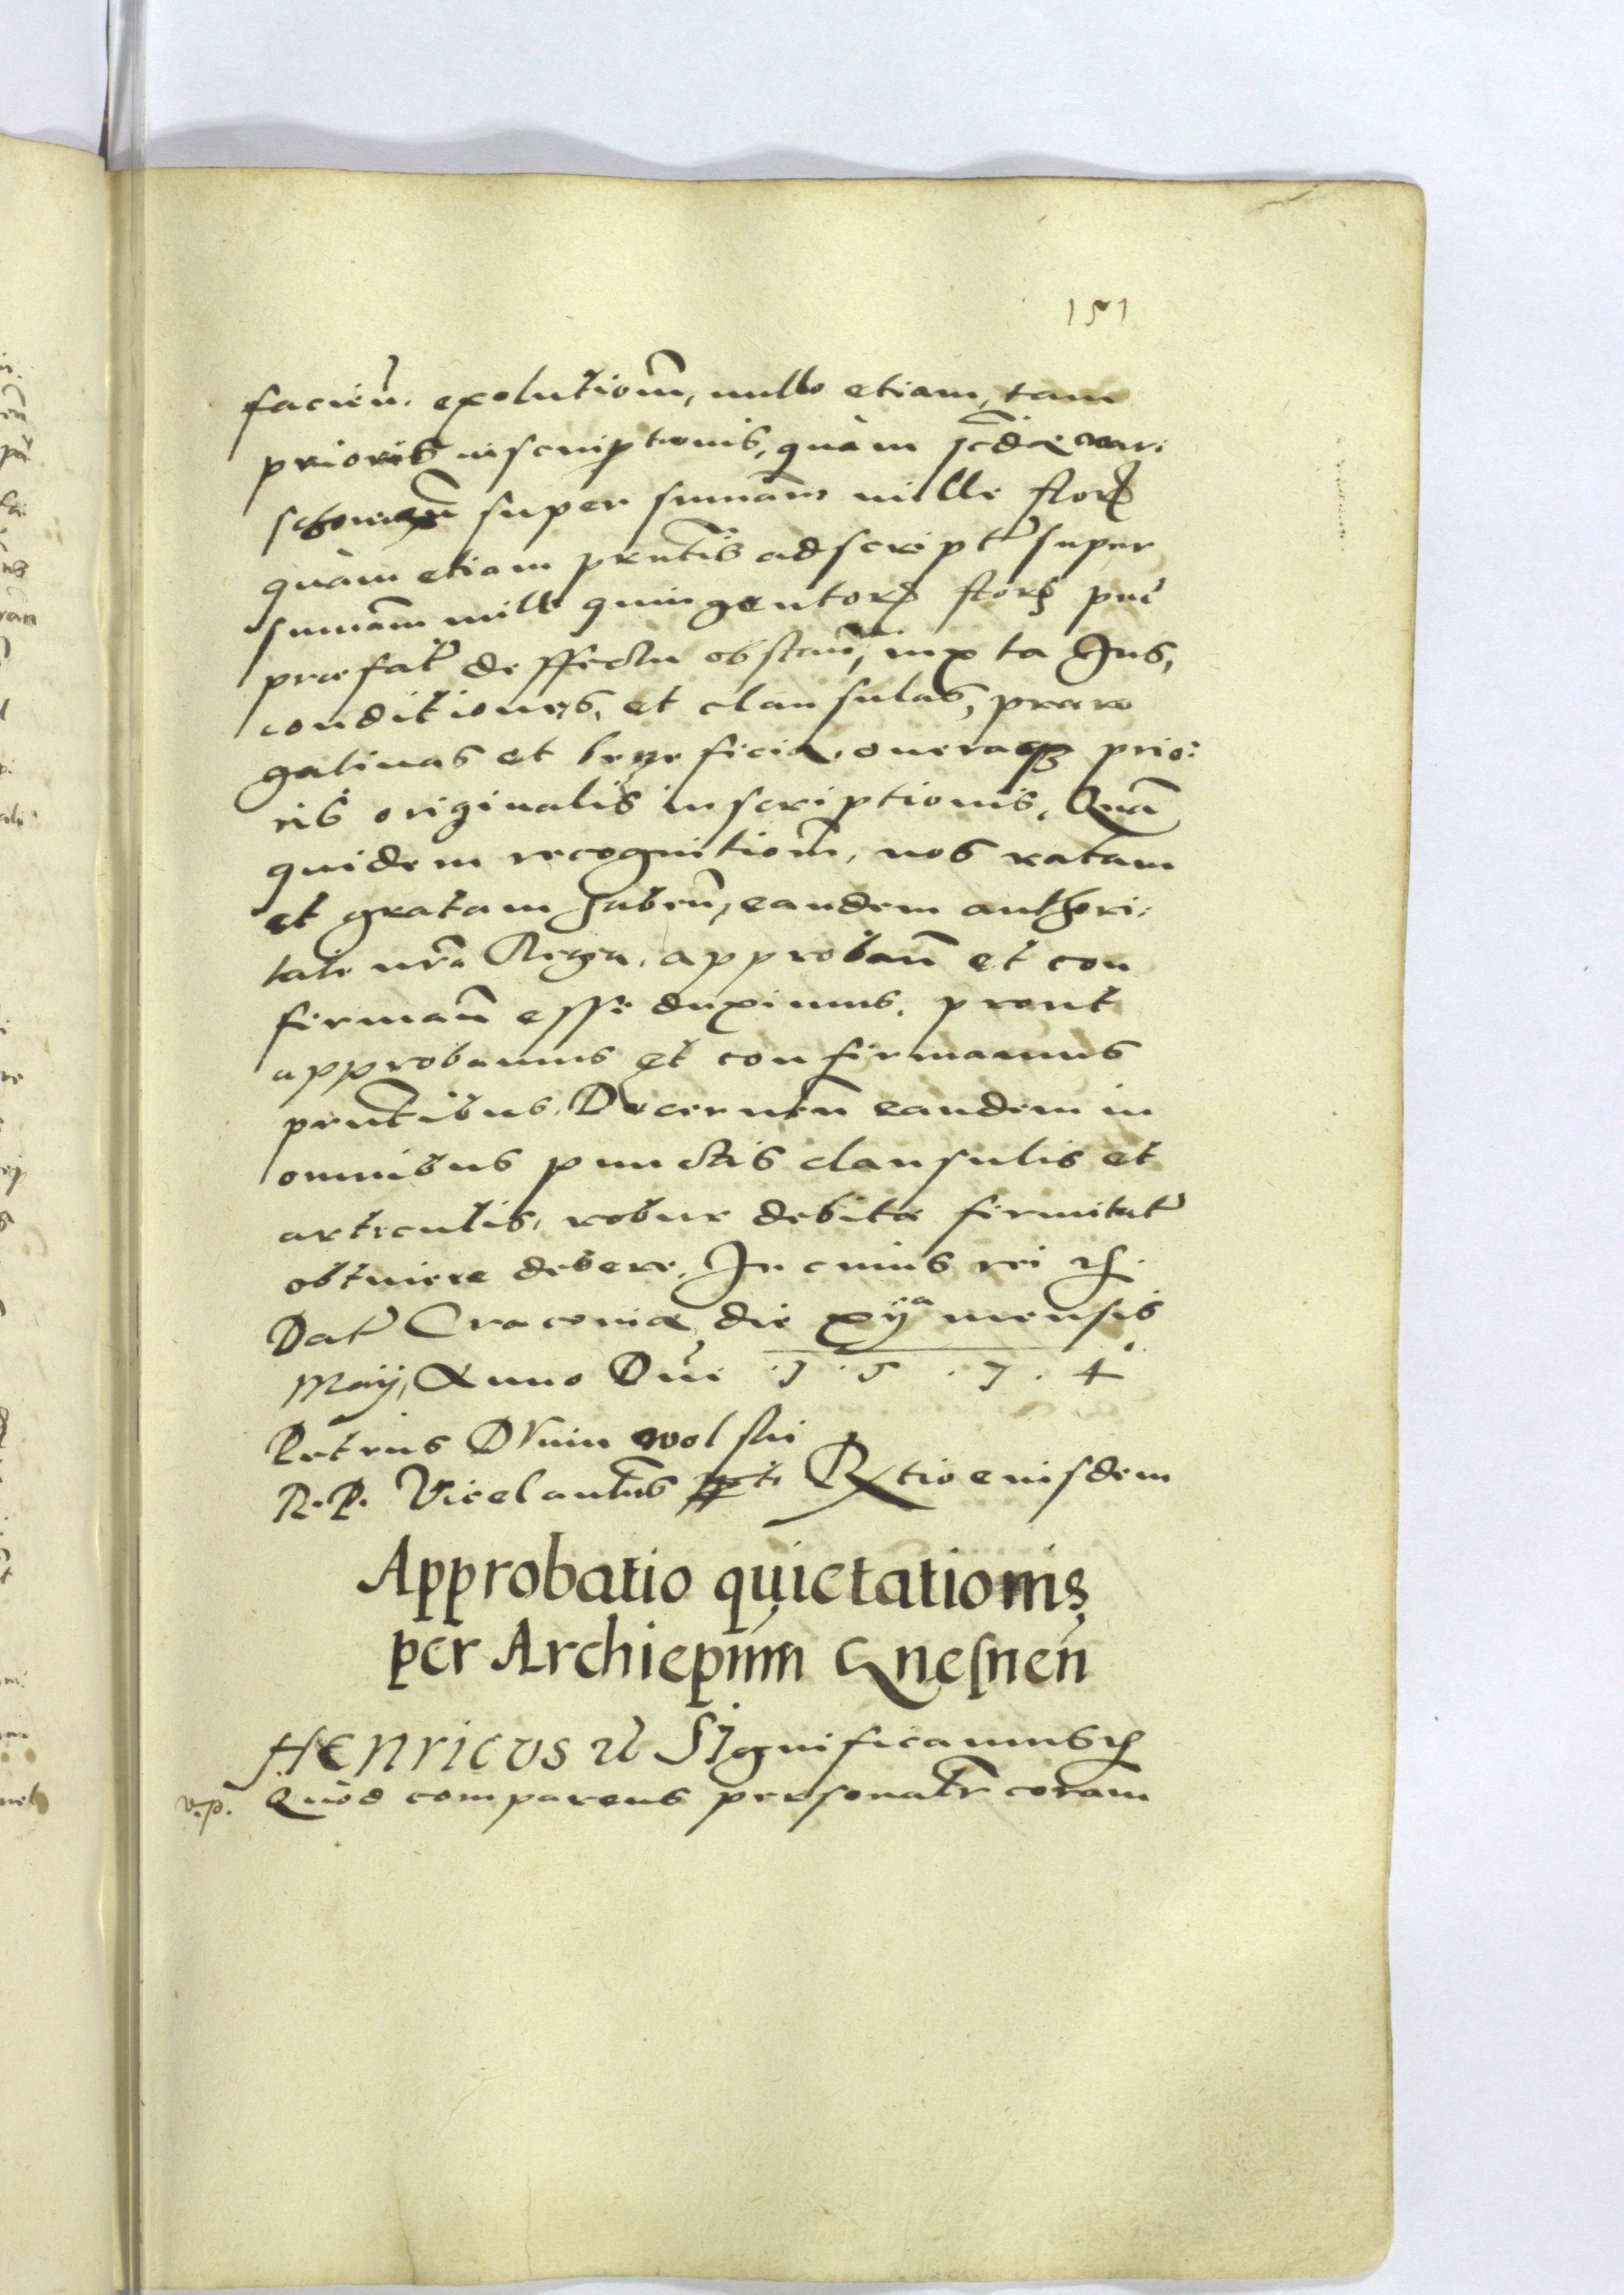 151
facien̄. exolutiom̄, nullo etiam, tam
prioris inscriptionis, quàm
super sum̄am mille flor̄
quàm etiam pn̄tis adscript̄ super
sum̄am mille quingentor̄ flor̄ per
præfat̄ deffectu obstan̄, iuxta Jus,
conditiones, et clausulas, præro
gatiuas et beneficia, oneraq̄ȝ prio:
ris originalis inscriptionis, Quā
quidem recognitiom̄, nos ratam
et gratam haben̄, eandem authori:
tate nr̄a Regia, approban̄ et con
firman̄ esse duximus, prout
approbamus et confirmamus
pn̄tibus. Decernen̄ eandem in
omnibus punctis clausulis et
articulis, robur debitæ firmitat̄
obtinere debere, In cuius rei etc.
Dat̄ Cracouiæ, die xijª mensis
Maij, Anno Dn̄i .1.5.7.4.
Petrus Dunin wolski
R. P. Vicelan̄tus Rx̄tio eiusdem
Approbatio quietationis
per Archiepum̄ Gnesnen̄
Henricus etc Significamus etc
v.p. Quòd comparens personalr̄ coram